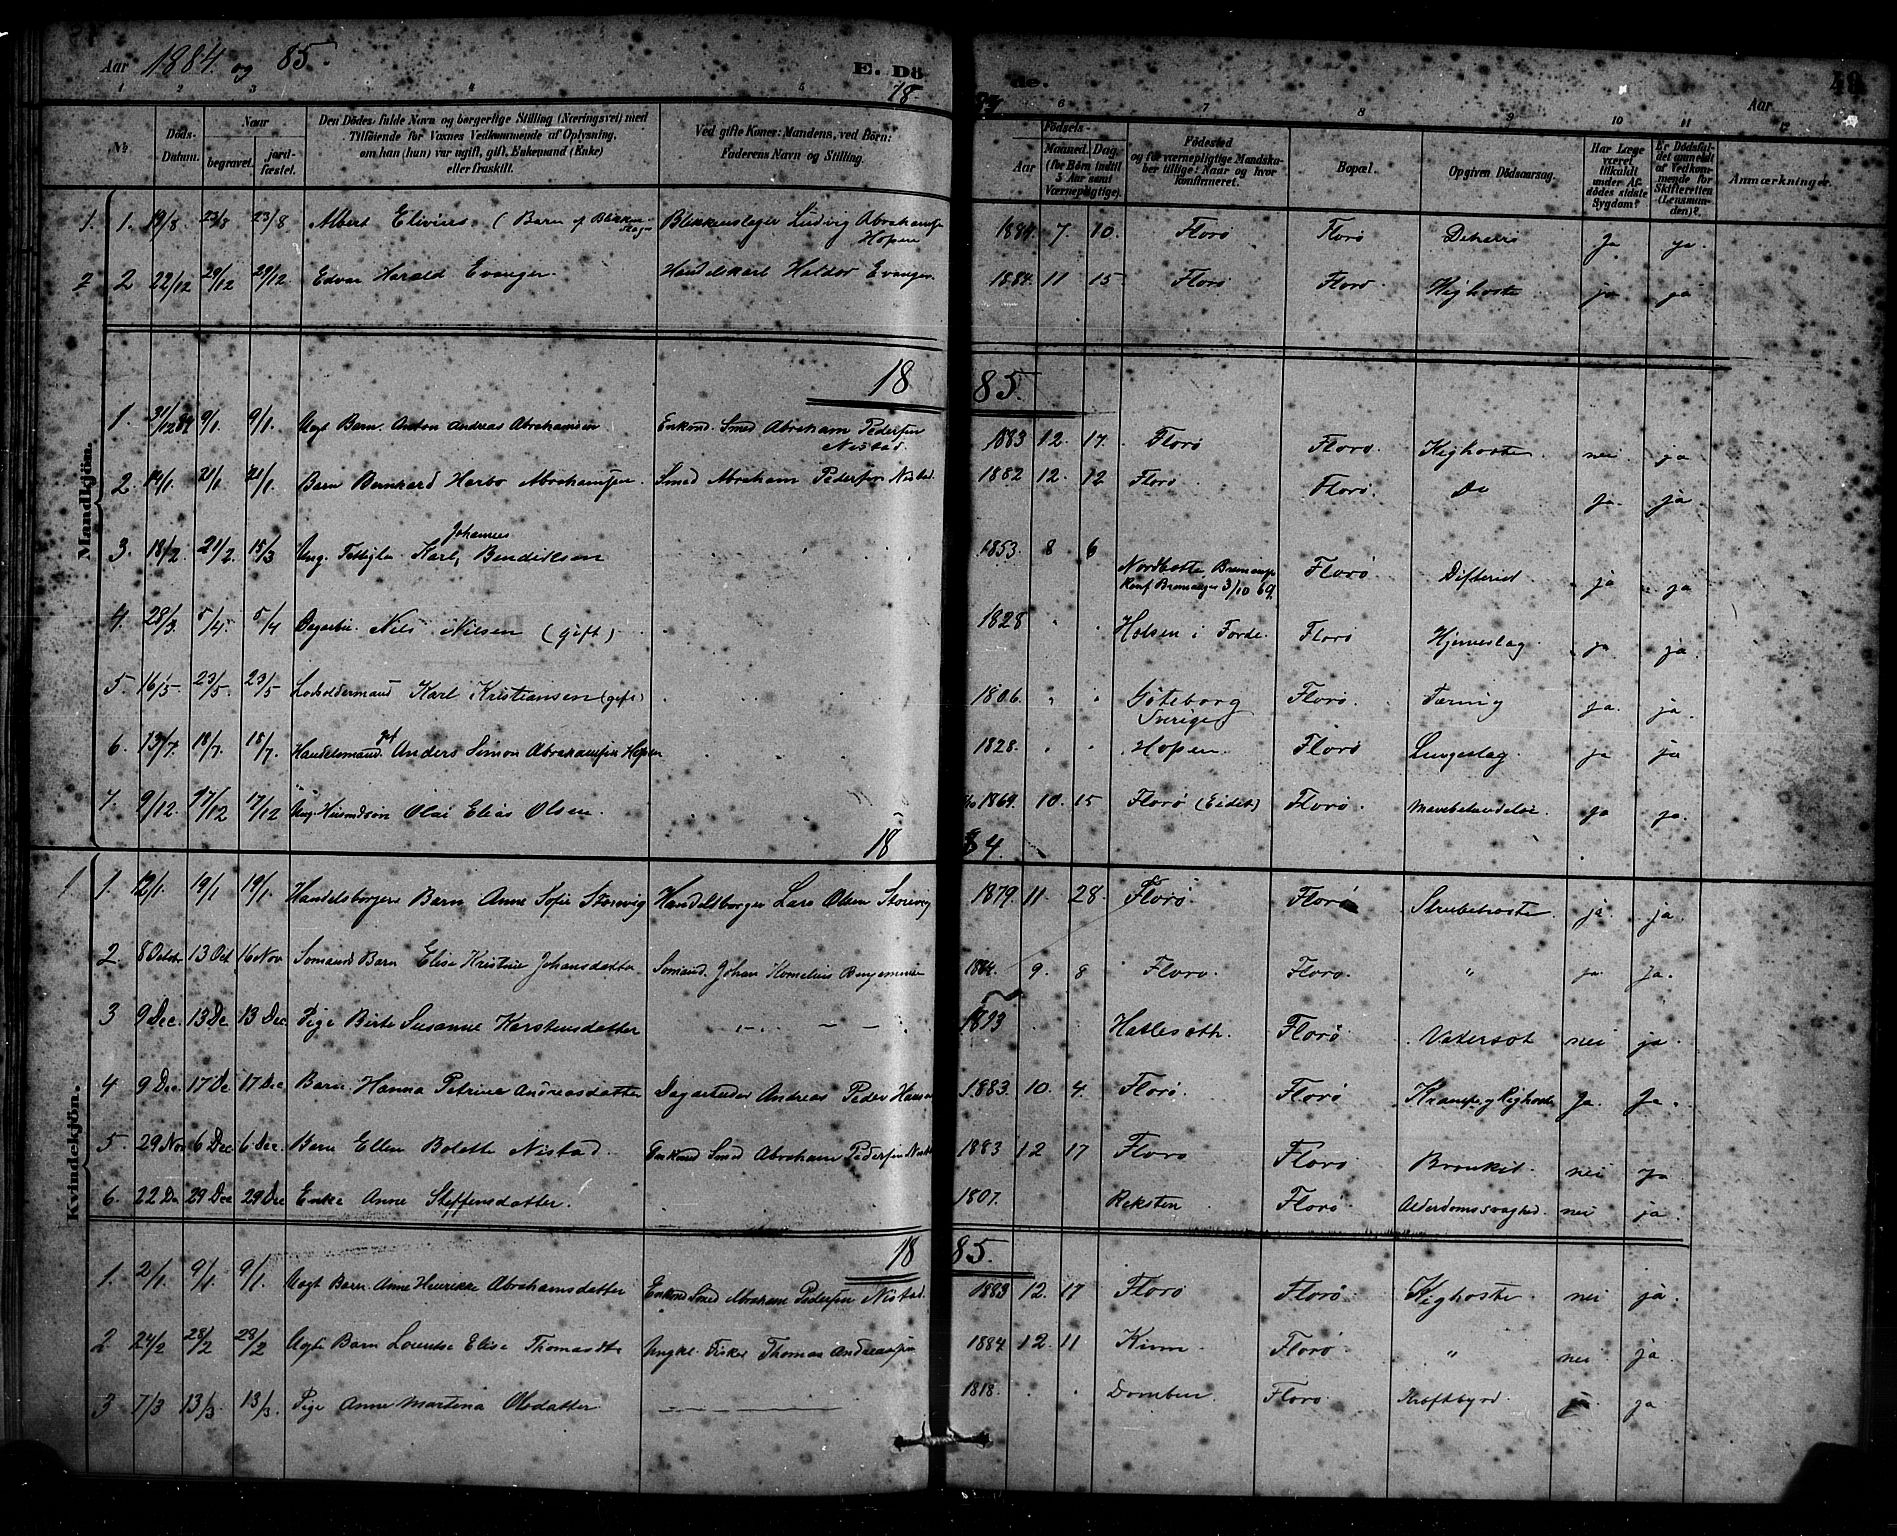 Aar 1884 og 85. E. Dö de. 49
Aar
1 2 3 4 5 6 7 8 9 10 11 12
18 84
No. Döds-Datum. Naar begravet. jord-fæstet. Den Dödes fulde Navn og borgerlige Stilling (Næringsvei) med Tilföiende for Voxnes Vedkommende af Oplysning, om han (hun) var ugift, gift, Enkemand (Enke) eller fraskilt. Ved gifte Koner: Mandens, ved Börn: Faderens Navn og Stilling. Födsels- Aar Maaned. Dag. (for Börn indtil 5 Aar samt Værnepligtige). Födested og for værnepligtige Mandskaber tillige: Naar og hvor konfirmeret. Bopæl. Opgiven Dödsaarsag. Har Læge været tilkaldt under Afdödes sidste Sygdom? Er Dödsfaldet anmeldt af Vedkommende for Skifteretten (Lensmanden)? Anmærkninger.
Mandkjön.
1. 1. 19/8 23/8 23/8 Albert Elivius (Barn af Blikkenslager Blikkenslager Ludvig Abrahamsen Hopen 1884 7. 10. Florö Florö Ja ja
2 2 22/12 29/12 29/12 Edvar Harald Evanger. Handelskarl Haldor Evanger. 1884. 11 15 Florö Florö Kighoste ja ja
18 85.
1. 31/12 84 9/1. 9/1. Uægt Barn. Anton Andreas Abrahamsen Enkemd. Smed Abraham Pedersen Nistad. 1883 12. 17. Florö Florö. Kighoste nei ja
2. 14/1. 21/1. 21/1. Barn Bernhard Herbo Abrahamsen. Smed Abraham Pedersen Nistad. 1882 12. 12 Florö Florö. Do ja ja
3. 18/2. 21/2. 15/3 Ung. Karl Johannes Bendiksen 1853. 8 6 Nordbotten Bremanger Konf Bremanger 3/10 69. Florö Difterid ja ja
4. 28/3. 5/4. 5/4 Dagarbei. Nils Nilsen (gift) 1828 " " Holsen i Förde. Florö Hjerneslag ja ja
5. 16/5. 23/5. 23/5 Lodsoldermand Karl Kristiansen (gift) 1806. " " Göteborg Sverige Florö. Tæring ja. ja.
6. 13/7. 18/7. 18/7. Handelsmand gift Anders Simon Abrahamsen Hopen 1828. Hopen. Florö Lungeslag ja ja
7. 9/12. 17/12 17/12 Ung. Husmdsön Olai Elias Olsen. 1869. 10. 15 Florö (Eidet) Florö. Mavebetændelse ja ja.
18 84.
Kvindekjön.
1 1. 12/1. 19/1 19/1. Handelsborgers Barn Anne Sofie Storevig Handelsborger Lars Olsen Storevig 1879. 11. 28. Florö Florö Strubehoste ja ja
2 8 Octobr 13 Oct 16 Nov Sömands Barn Elise Kristine Johansdatter Sömand. Johan Kornelius Benjaminsen 1884. 9. 8 Florö. Florö. " ja Ja.
3 9 Dec. 13 De 13 Dec Pige Birte Susanne Karstensdatter 1893 Hatleseth. Florö. Vatersot nei ja.
4 9 Dec. 17 De 17 Dec Barn. Hanna Petrine Andreasdatter Dagarbeider Andreas Peder Hansen 1883. 10. 4. Florö. Florö Krampe og Kighoste Ja. Ja.
5. 29 Nov 6 Dec 6 Dec. Barn Ellen Bolette Nistad. Enkemd Smed Abraham Pedersen Nistad 1883 12 17 Florö Florö Bronkit. nei Ja
6. 22 De 29 Dec 29 Dec Enke Anne Steffensdatter. 1807. Reksten Florö. Alderdomssvaghed. nei ja.
18 85.
1. 2/1. 9/1 9/1. Uægt Barn. Anne Henrikke Abrahamsdatter Enkemd Smed Abraham Pedersen Nistad. 1883 12. 17 Florö Florö. Kighoste. nei ja.
2 24/2 28/2 28/2 Uægte Barn Lorentse Elise Thomasdtr Ungkl. Fisker Thomas Andreassen 1884 12. 11 Kinn Florö " nei ja.
3 7/3 13/3. 13/3. Pige Anne Martena Olsdatter 1818. Domben Florö. Kræftbyrd ja